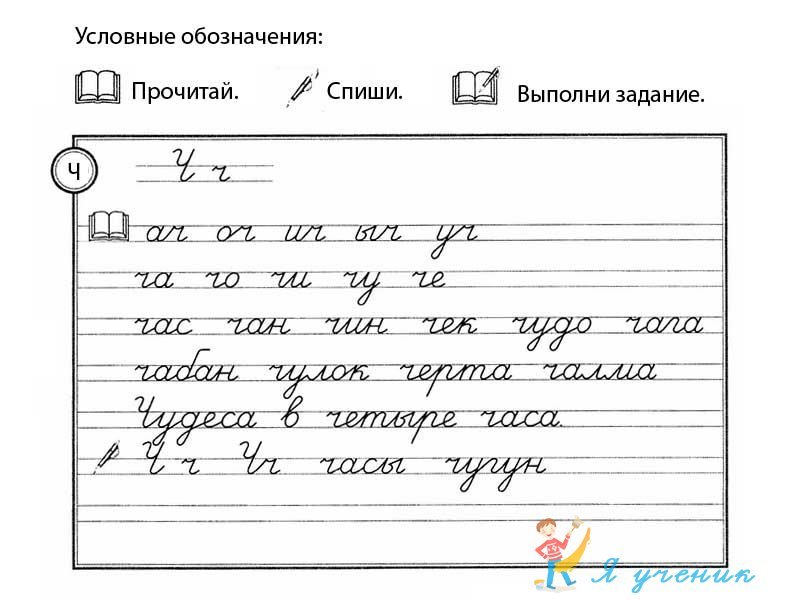 Условные обозначения:
Прочитай. Спиши. Выполни задание.
Ч
Ч ч
ач оч ич ыч уч
ча чо чи чу че
час чан чин чек чудо чага
чабан чулок черта чалма
Чудеса в четыре часа.
Ч ч Чч часы чугун
Я ученик